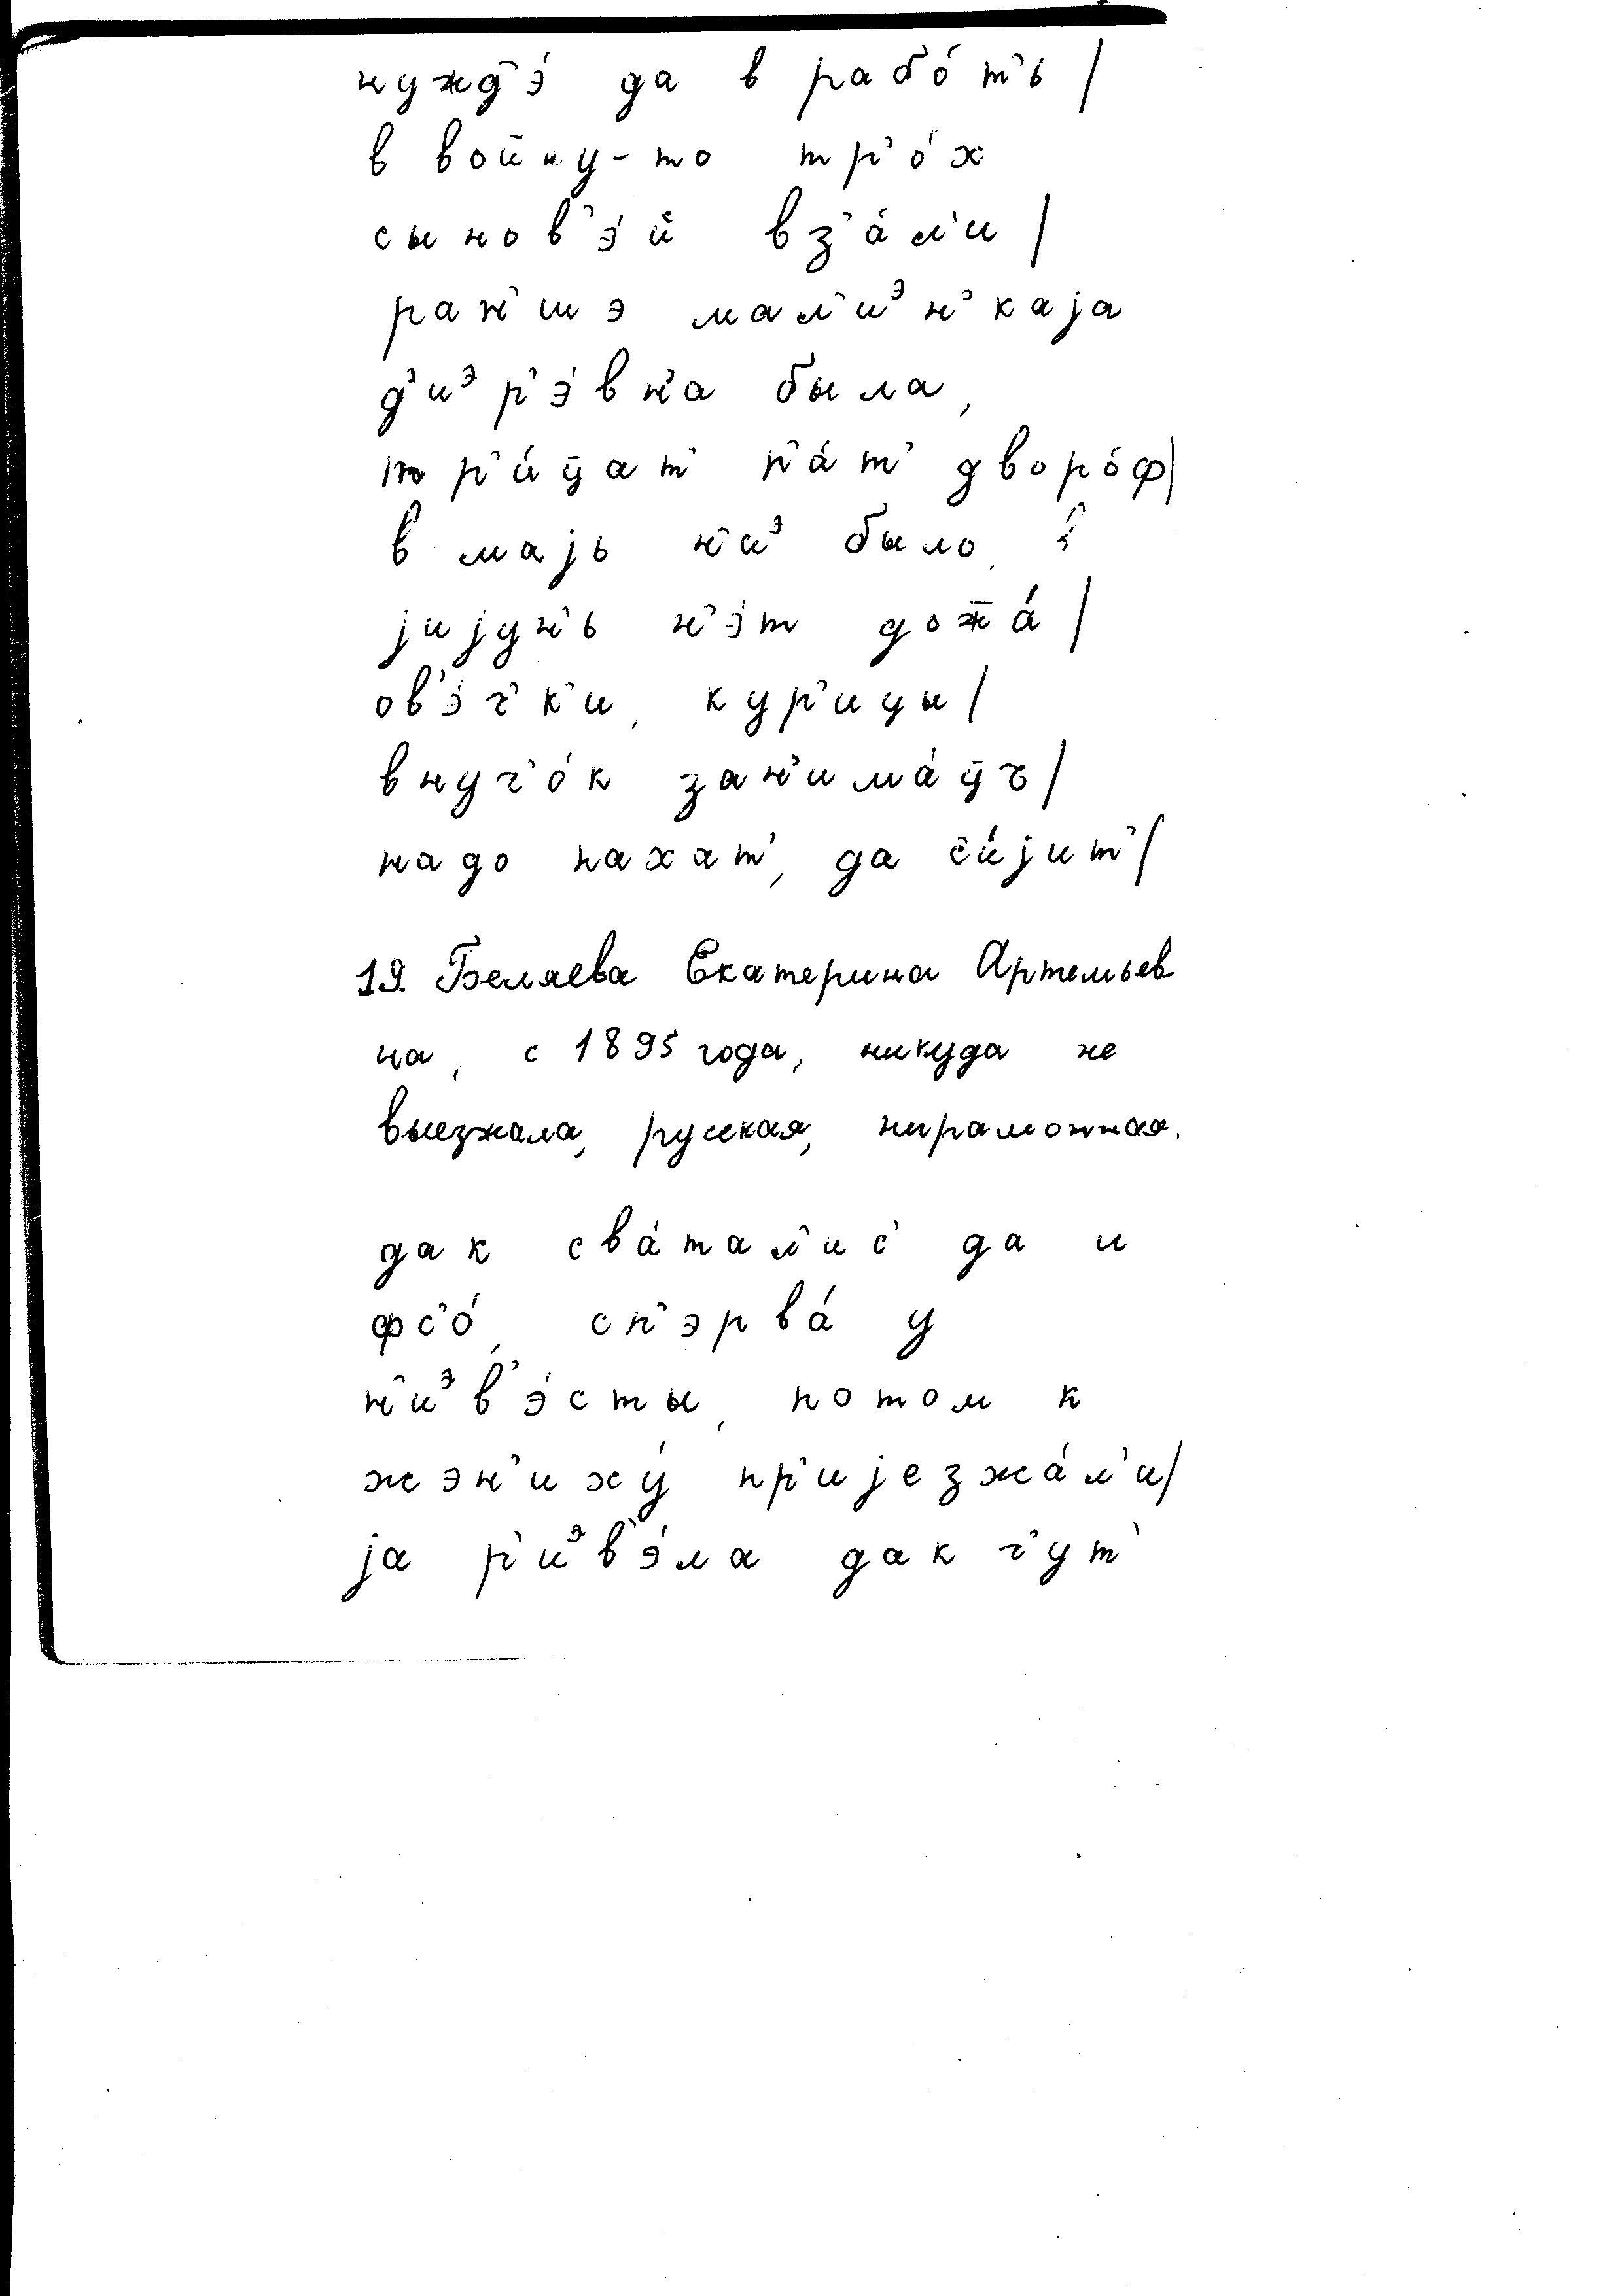 нужд’э́ да в рабо́т’ь /
в войну-то тр’о́х
сынов’э́й вз’а́л’и /
ран’шэ мал’иᵊн’каjа
д’иᵊр’э́вн’а была,
тр’и́ц̄ат’ п’а́т’ дворо́ф /
в маjь н’иᵊ было, в
jиjун’ь н’э́т дож̄а́ /
ов’э́ч’к’и, кур’ицы /
внуч’о́к зан’има́ц̄ъ /
надо пахат’, да с’и́jит’ /
19. Беляева Екатерина Артемьев
на, с 1895 года, никуда не
выезжала, русская, неграмотная.
дак сва́тал’ис’ да и
фс’о́, сп’эрва́ у
н’иᵊв’э́сты, потом к
жэн’иху́ пр’иjезжа́л’и /
jа р’иᵊв’э́ла дак ч’ут’